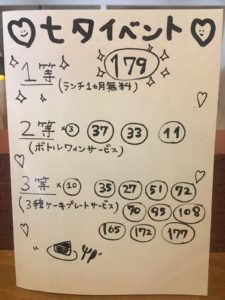 七夕イベント
1等 179
(ランチ1ヵ月無料)
2等 ×3 37 33 11
(ボトルワインサービス)
3等 ×10 35 27 51 92
(3種ケーキプレートサービス) 70 95 108
165 172 177